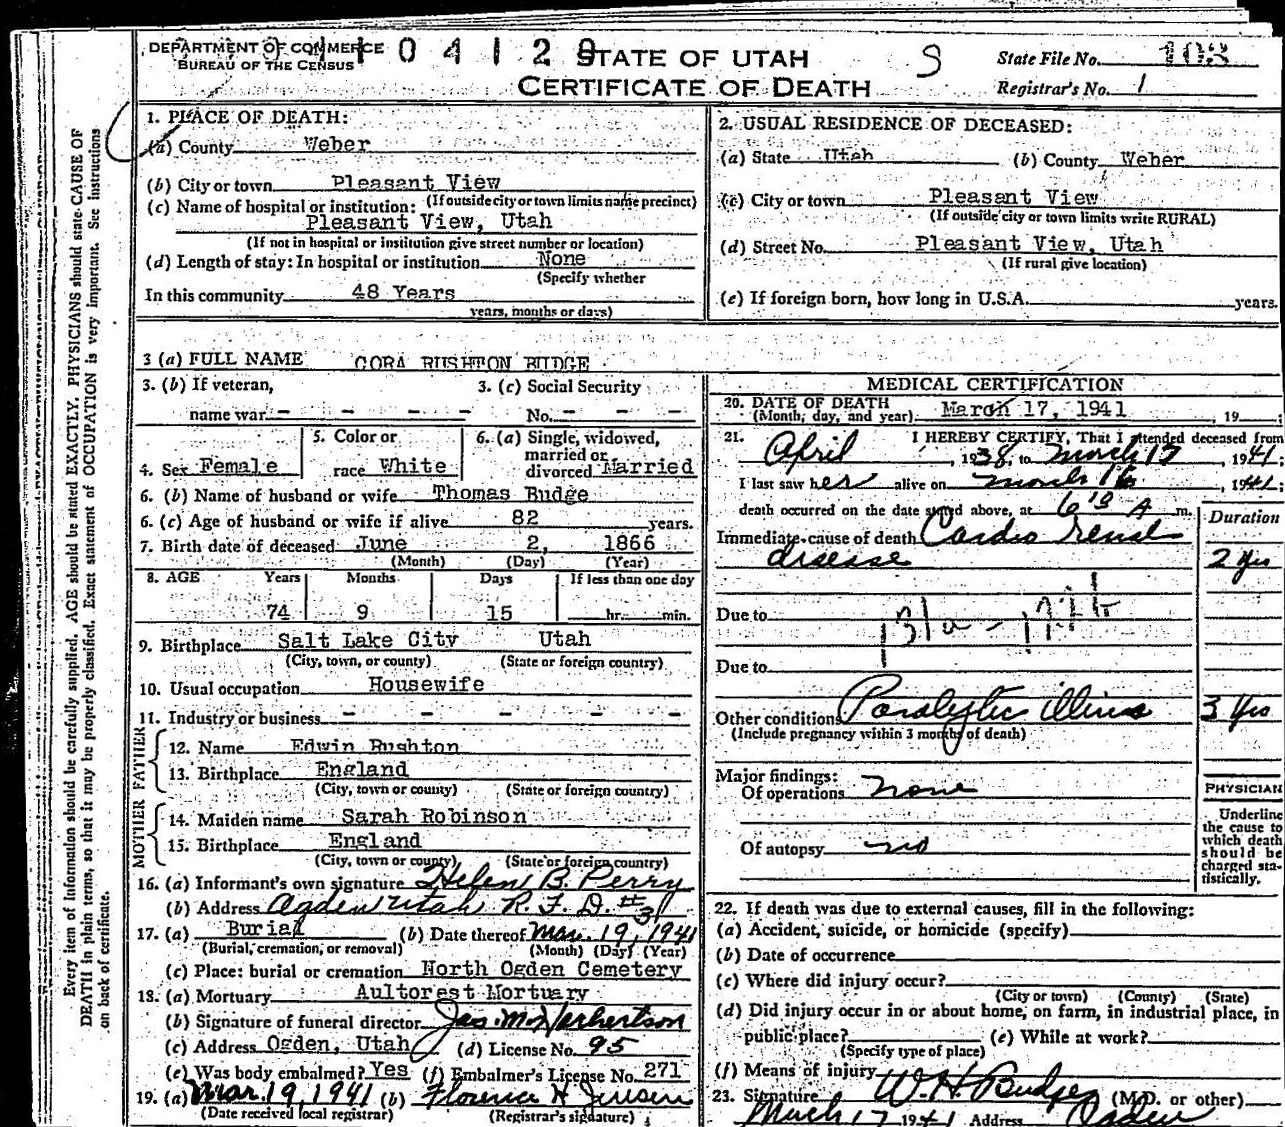 DEPARTMENT OF COMMERCE
BUREAU OF THE CENSUS
0 4 1 2 9
STATE OF UTAH
CERTIFICATE OF DEATH
S
State File No. 103
Registrar's No. 1
Every item of information should be carefully supplied. AGE should be stated EXACTLY. PHYSICIANS should state CAUSE OF
DEATH in plain terms, so that it may be properly classified. Exact statement of OCCUPATION is very important. See instructions
on back of certificate.
1. PLACE OF DEATH:
(a) County Weber
(b) City or town Pleasant View
(If outside city or town limits name precinct)
(c) Name of hospital or institution:
Pleasant View, Utah
(If not in hospital or institution give street number or location)
(d) Length of stay: In hospital or institution None
(Specify whether
In this community 48 Years
years, months or days)
2. USUAL RESIDENCE OF DECEASED:
(a) State Utah (b) County Weber
(c) City or town Pleasant View
(If outside city or town limits write RURAL)
(d) Street No. Pleasant View, Utah
(If rural give location)
(e) If foreign born, how long in U.S.A. years.
3 (a) FULL NAME CORA RUSHTON BUDGE
3. (b) If veteran,
name war - - - -
3. (c) Social Security
No. - - - -
4. Sex Female
5. Color or
race White
6. (a) Single, widowed,
married or
divorced Married
6. (b) Name of husband or wife Thomas Budge
6. (c) Age of husband or wife if alive 82 years.
7. Birth date of deceased June 2, 1866
(Month) (Day) (Year)
8. AGE Years Months Days If less than one day
74 9 15 hr. min.
9. Birthplace Salt Lake City Utah
(City, town, or county) (State or foreign country)
10. Usual occupation Housewife
11. Industry or business - - - - - - -
FATHER
12. Name Edwin Rushton
13. Birthplace England
(City, town or county) (State or foreign country)
MOTHER
14. Maiden name Sarah Robinson
15. Birthplace England
(City, town or county) (State or foreign country)
16. (a) Informant's own signature Helen B. Perry
(b) Address Ogden Utah R. F. D. #3
17. (a) Burial (b) Date thereof Mar. 19, 1941
(Burial, cremation, or removal) (Month) (Day) (Year)
(c) Place: burial or cremation North Ogden Cemetery
18. (a) Mortuary Aultorest Mortuary
(b) Signature of funeral director
(c) Address Ogden, Utah (d) License No. 95
(e) Was body embalmed? Yes (f) Embalmer's License No. 271
19. (a) Mar. 19, 1941 (b) Florence H Jensen
(Date received local registrar) (Registrar's signature)
MEDICAL CERTIFICATION
20. DATE OF DEATH
(Month, day, and year) March 17, 1941 , 19
21. I HEREBY CERTIFY, That I attended deceased from
April , 1938, to March 17 , 1941;
I last saw her alive on March 16 , 1941;
death occurred on the date stated above, at A m.
Duration
Immediate cause of death Cardio renal
disease 2 yrs
Due to 131a -
Due to
Other conditions Paralytic illius 3 yrs
(Include pregnancy within 3 months of death)
Major findings:
Of operations none
Of autopsy no
PHYSICIAN
Underline
the cause to
which death
should be
charged sta-
tistically.
22. If death was due to external causes, fill in the following:
(a) Accident, suicide, or homicide (specify)
(b) Date of occurrence
(c) Where did injury occur?
(City or town) (County) (State)
(d) Did injury occur in or about home, on farm, in industrial place, in
public place? (e) While at work?
(Specify type of place)
(f) Means of injury
23. Signature W. H. Budge (M.D. or other)
March 17 1941 Address Ogden